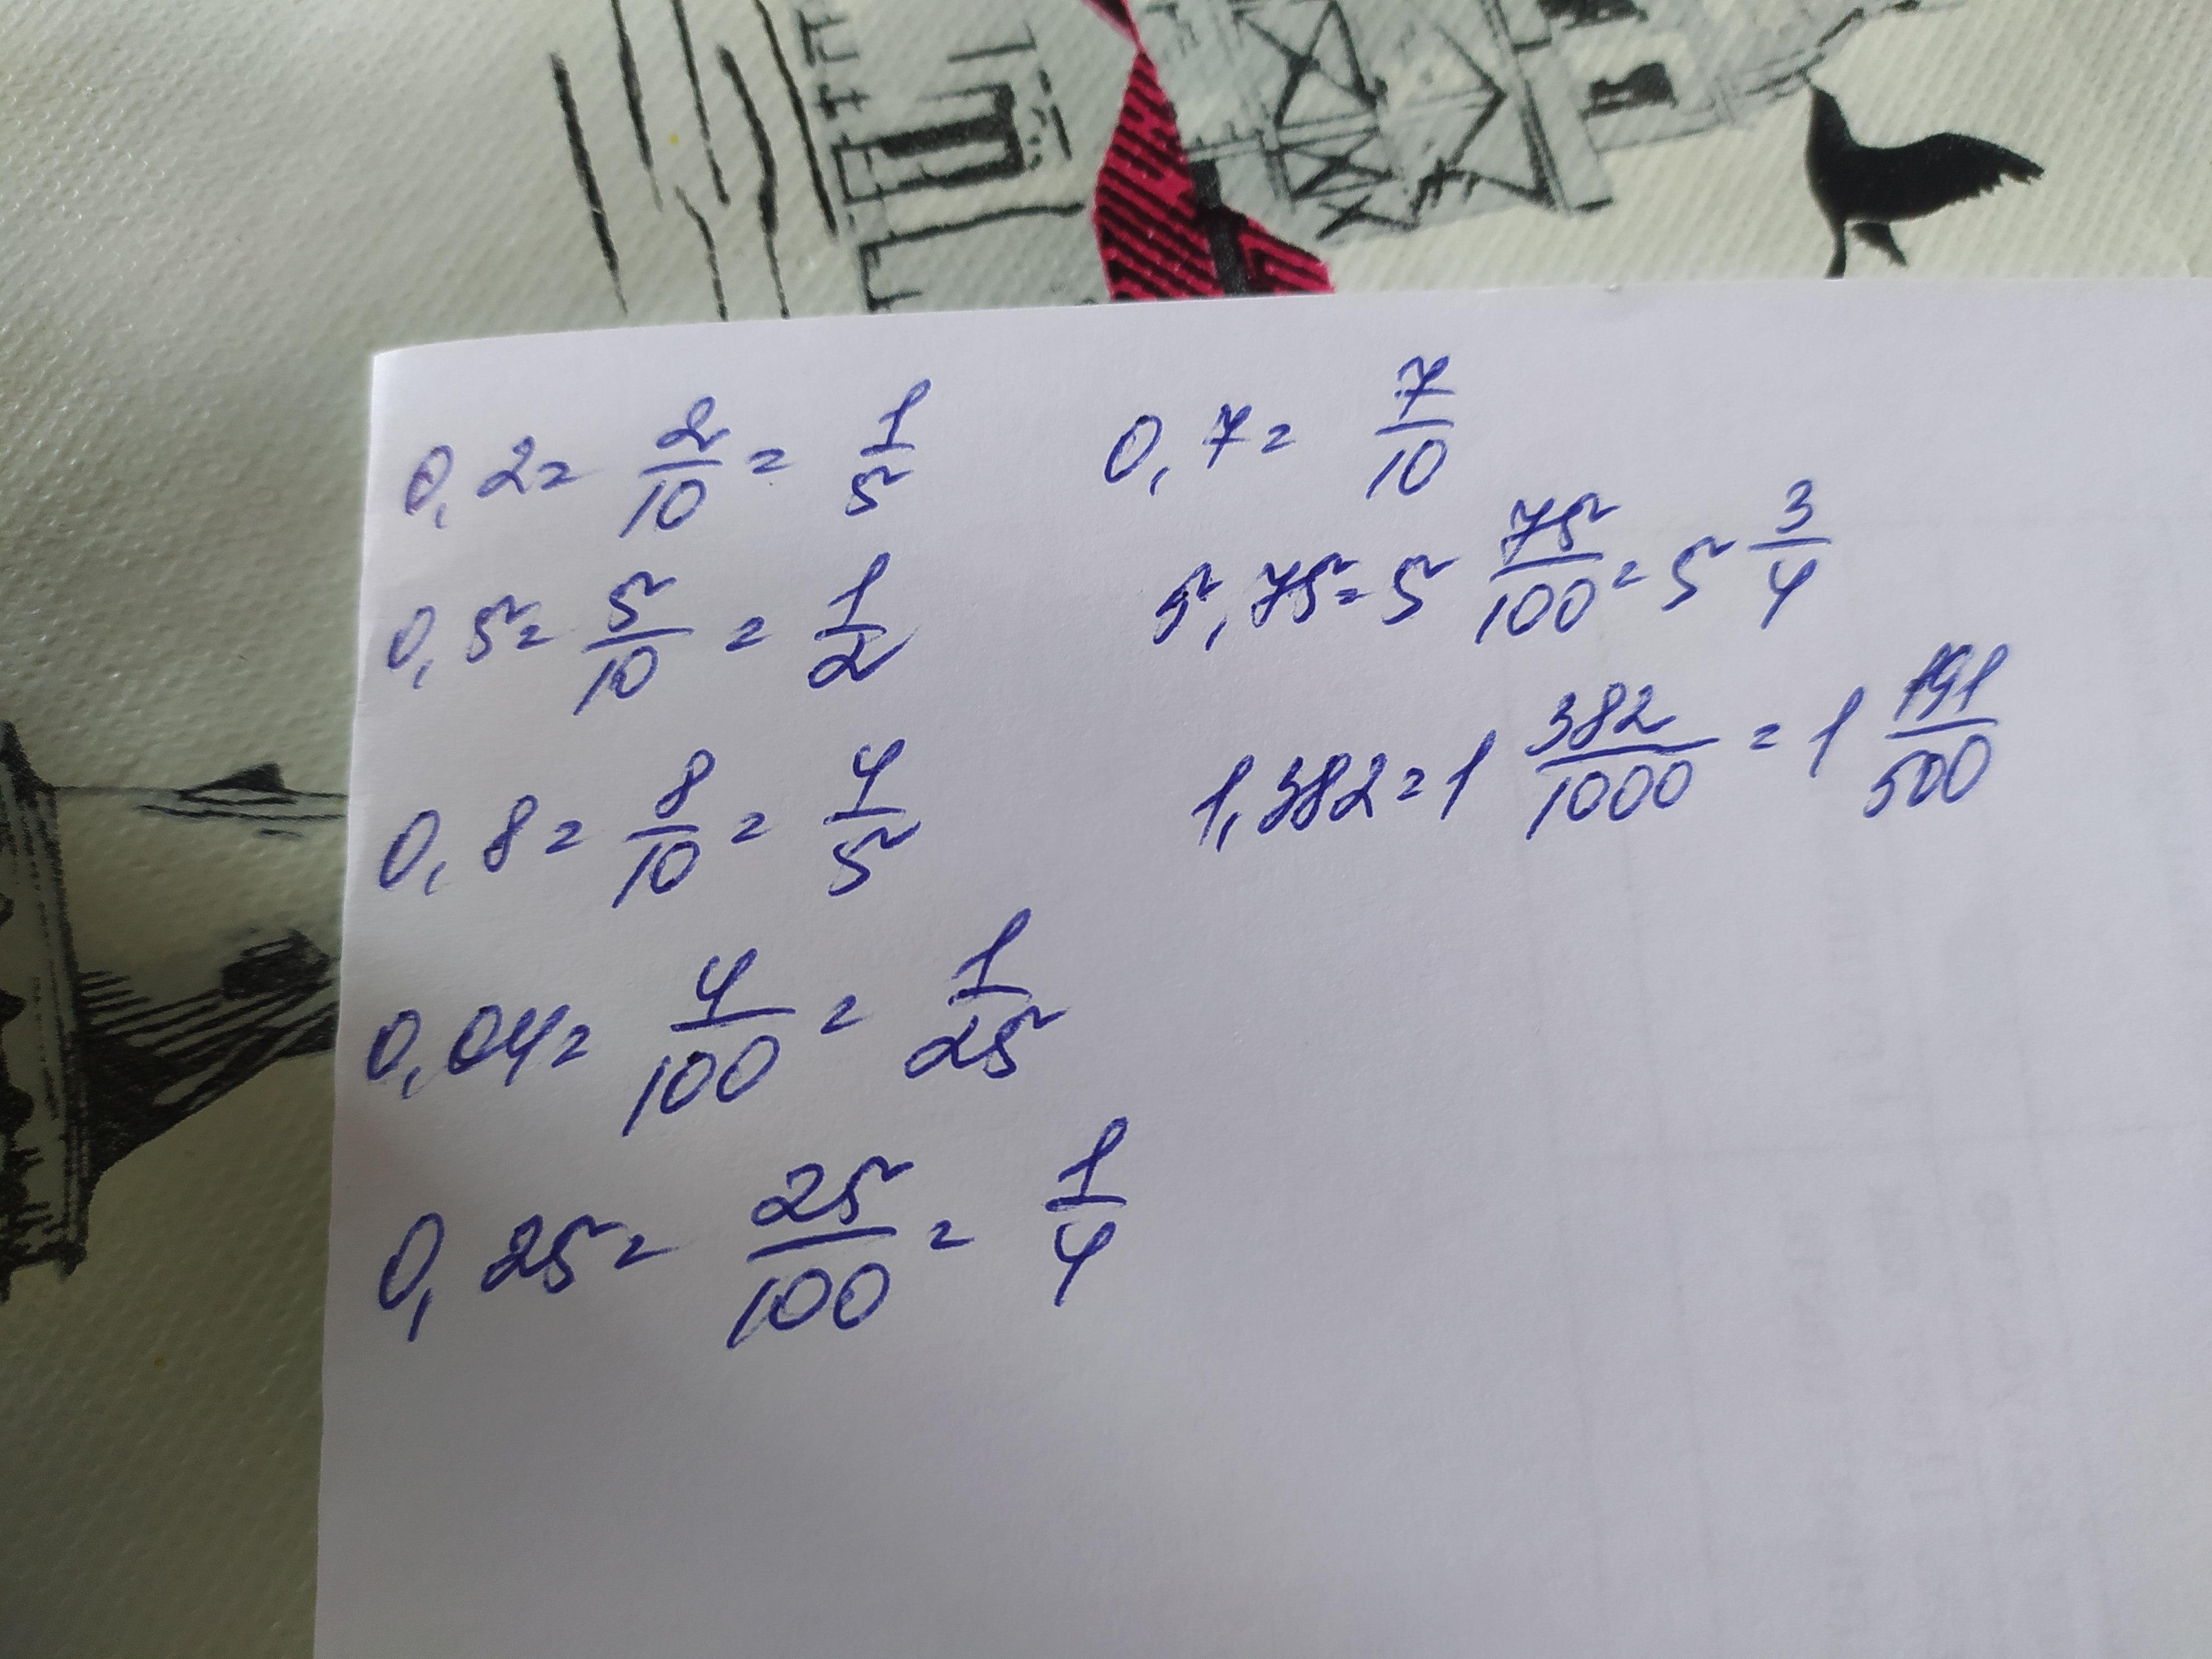 0,2 = 2/10 = 1/5
0,5 = 5/10 = 1/2
0,8 = 8/10 = 4/5
0,04 = 4/100 = 1/25
0,25 = 25/100 = 1/4
0,7 = 7/10
5,75 = 5 75/100 = 5 3/4
1,382 = 1 382/1000 = 1 191/500